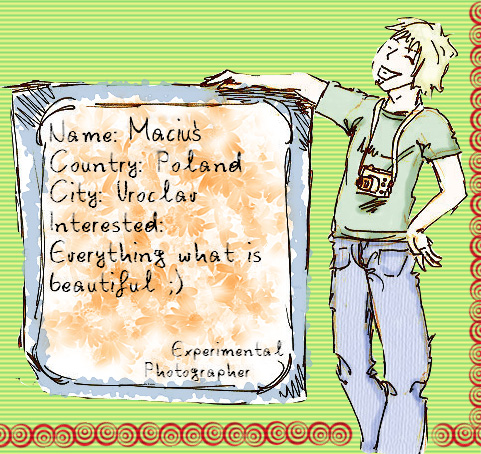 Name: Maciuś
Country: Poland
City: Vroclav
Interested:
Everything what is
beautiful ;)
Experimental
Photographer